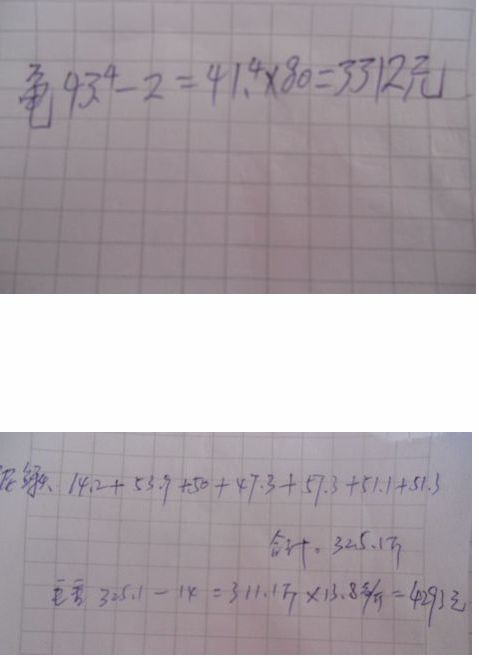 龟 43.4-2=41.4×80=3312元
泥鳅: 14.2+53.9+50+47.3+57.3+51.1+51.3
合计: 325.1斤
325.1-14=311.1斤×13.8元/斤=4293元